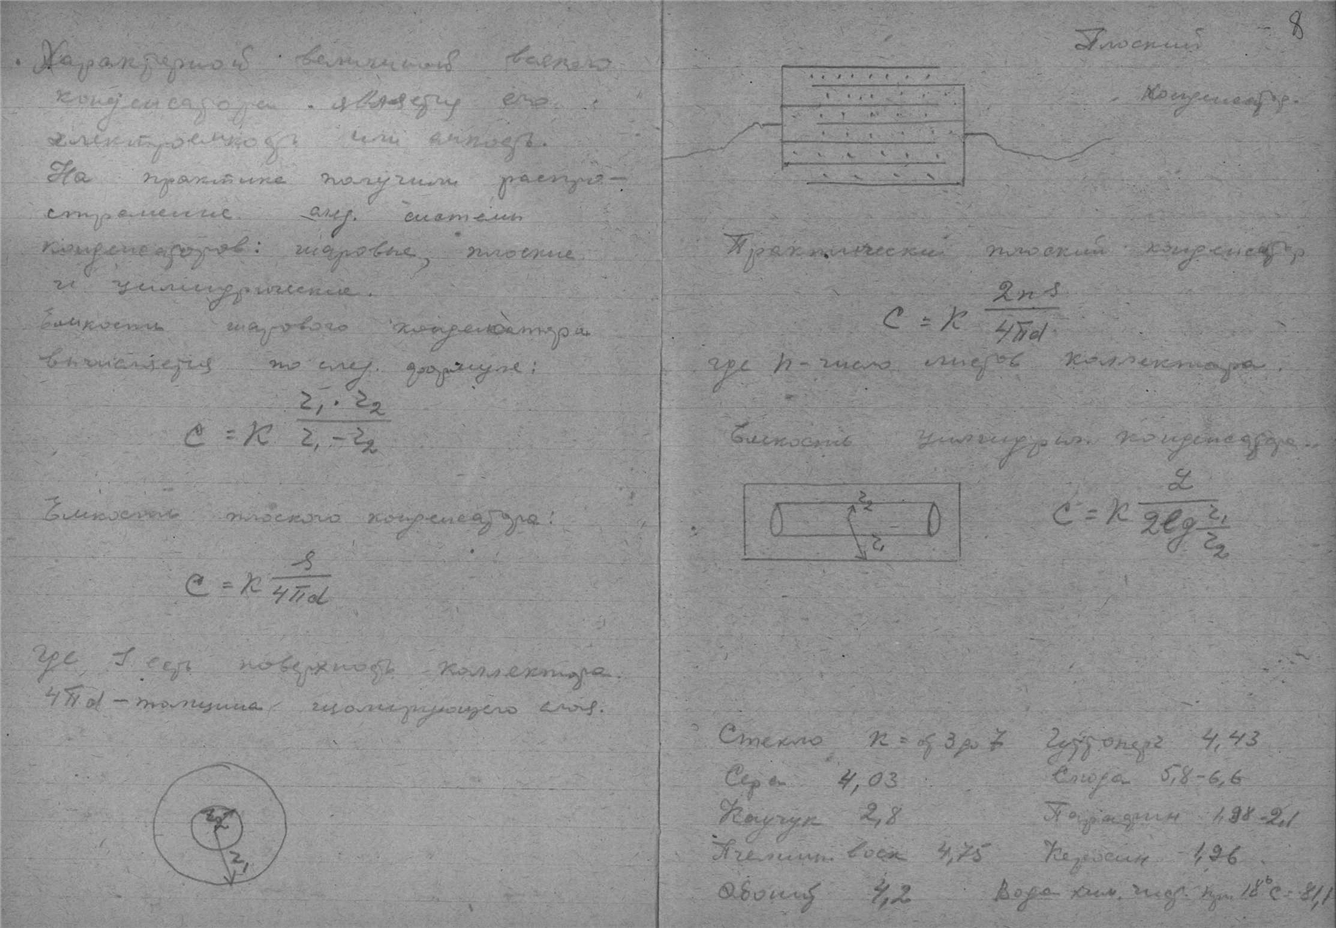 Характерной величиной всякого
конденсатора является его
электроемкость или емкость.
На практике получили распро-
странение след. системы
конденсаторов: шаровые, плоские
и цилиндрические.
Емкость шарового конденсатора
вычисляется по след. формуле:
C = K r₁ · r₂ / r₁ – r₂
Емкость плоского конденсатора:
C = K S / 4πd
где S есть поверхность коллектора.
4πd – толщина изолирующего слоя.
r₂
r₁
8
Плоский
конденсатор.
Практический плоский конденсатор
C = K 2n S / 4πd
где n – число листов коллектора.
Емкость цилиндрич. конденсатора.
r₂
r₁
C = K L / 2lg r₁/r₂
Стекло K = от 3 до 7 Гуттаперч 4,43
Сера 4,03 Слюда 5,8–6,6
Каучук 2,8 Парафин 1,98–2,1
Пчелин. воск 4,75 Керосин 1,96
Эбонит 4,2 Вода хим. чист. при 18° C = 81,1